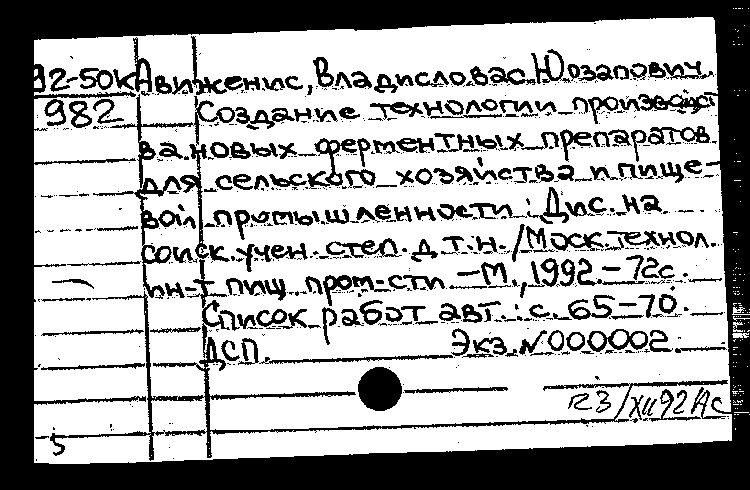 92-50к Авиженис, Владисловас Юозапович.
982 Создание технологии производст
ва новых ферментных препаратов
для сельского хозяйства и пище-
вой промышленности: Дис. на
соиск. учен. степ. д.т.н. / Моск. технол.
ин-т пищ. пром-сти. - М., 1992. - 72с.
Список работ авт.: с. 65-70.
ДСП. Экз. № 000002.
23/XII92
5